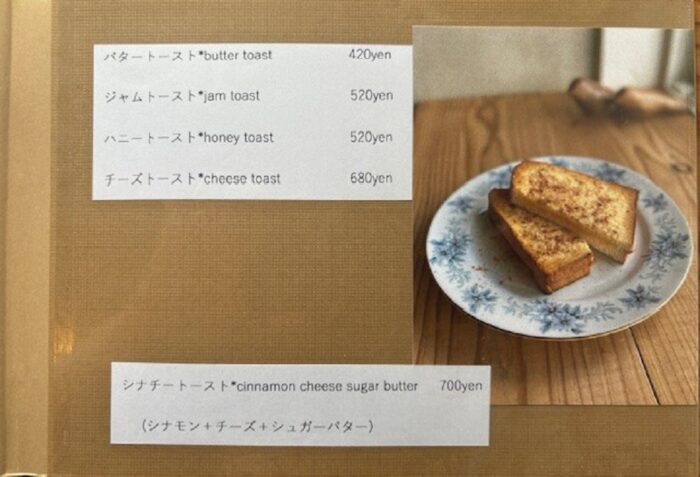 バタートースト*butter toast 420yen
ジャムトースト*jam toast 520yen
ハニートースト*honey toast 520yen
チーズトースト*cheese toast 680yen
シナチートースト*cinnamon cheese sugar butter 700yen
(シナモン+チーズ+シュガーバター)